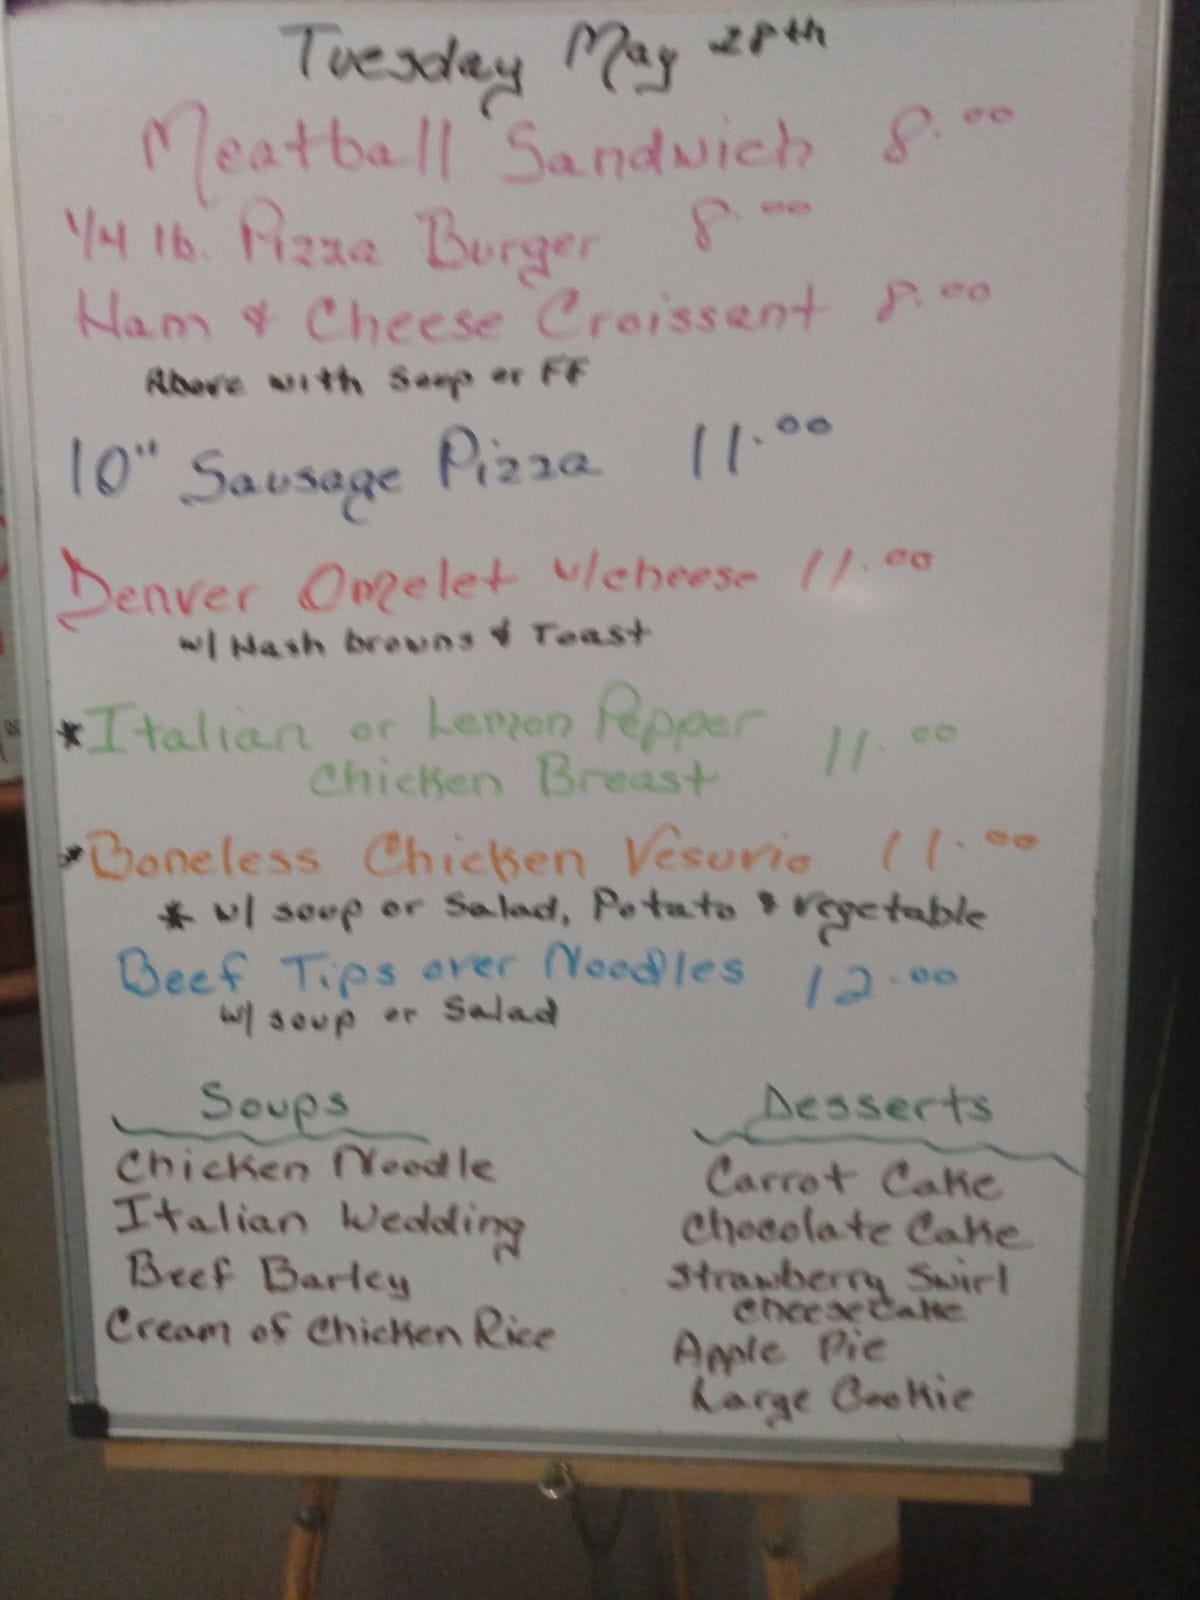 Tuesday May 28th
Meatball Sandwich 8.00
1/4 lb. Pizza Burger 8.00
Ham & Cheese Croissant 8.00
Above with Soup or FF
10" Sausage Pizza 11.00
Denver Omelet w/cheese 11.00
w/ Hash browns & Toast
*Italian or Lemon Pepper 11.00
Chicken Breast
*Boneless Chicken Vesuvio 11.00
* w/ soup or Salad, Potato & vegetable
Beef Tips over Noodles 12.00
w/ soup or Salad
Soups
Chicken Noodle
Italian Wedding
Beef Barley
Cream of Chicken Rice
Desserts
Carrot Cake
Chocolate Cake
Strawberry Swirl
Cheesecake
Apple Pie
Large Cookie